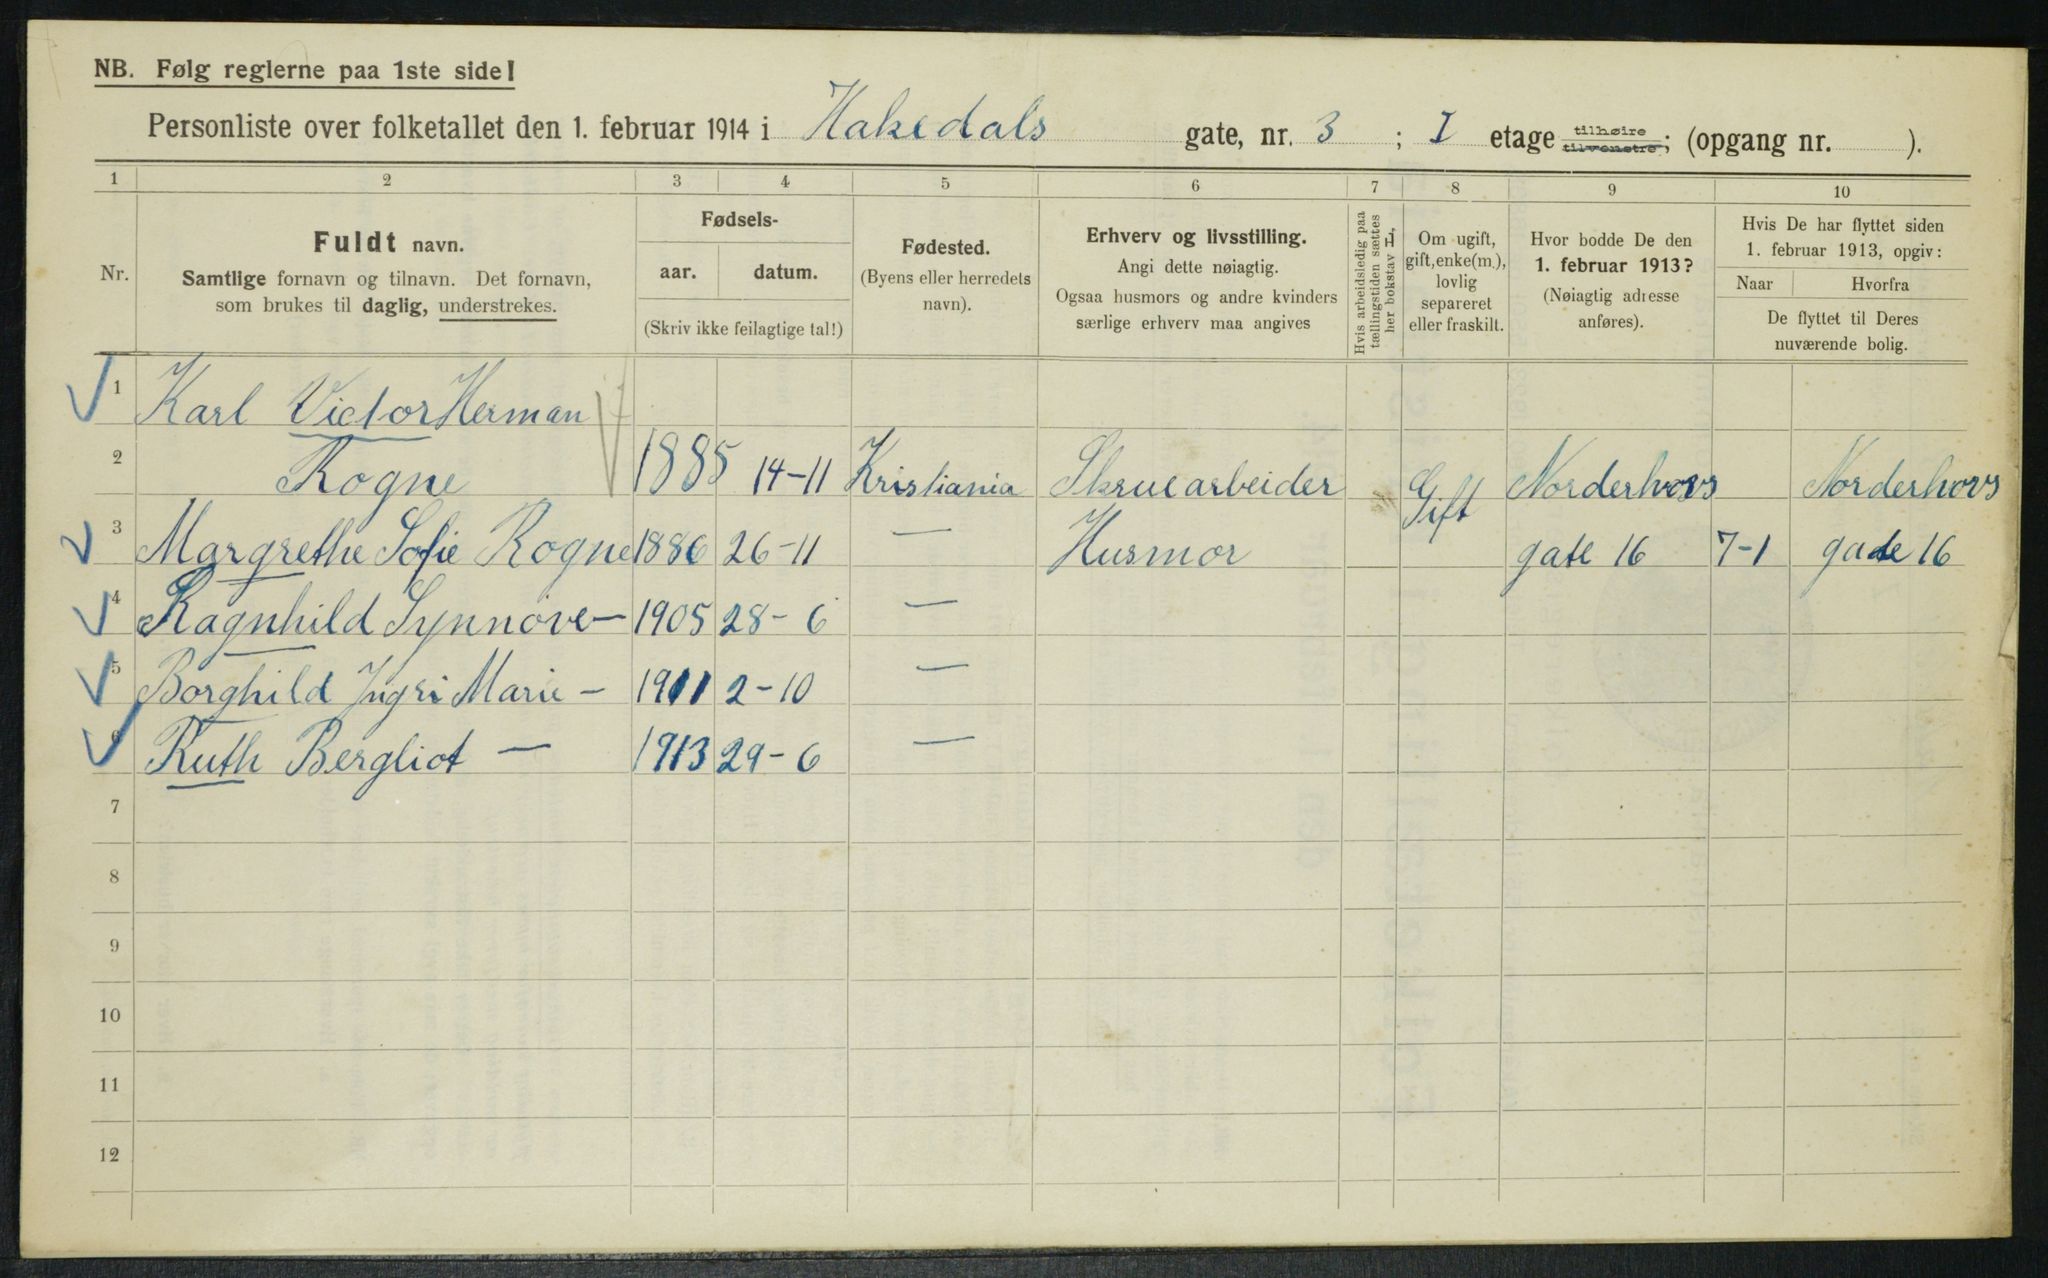 NB. Følg reglerne paa 1ste side!
Personliste over folketallet den 1. februar 1914 i Hakedals gate, nr. 3 ; I etage tilhøire tilvenstre; (opgang nr. ).
1 2 3 4 5 6 7 8 9 10
Nr.
Fuldt navn.
Samtlige fornavn og tilnavn. Det fornavn,
som brukes til daglig, understrekes.
Fødsels-
aar. datum.
(Skriv ikke feilagtige tal!)
Fødested.
(Byens eller herredets
navn).
Erhverv og livsstilling.
Angi dette nøiagtig.
Ogsaa husmors og andre kvinders
særlige erhverv maa angives
Hvis arbeidsledig paa
tællingstiden sættes
her bokstav L,
Om ugift,
gift, enke(m.),
lovlig
separeret
eller fraskilt.
Hvor bodde De den
1. februar 1913?
(Nøiagtig adresse
anføres).
Hvis De har flyttet siden
1. februar 1913, opgiv:
Naar Hvorfra
De flyttet til Deres
nuværende bolig.
1 Karl Victor Herman
2 Rogne 1885 14-11 Kristiania Skruearbeider Gift Norderhovs Norderhovs
3 Margrethe Sofie Rogne 1886 26-11 — Husmor gate 16 7-1 gade 16
4 Ragnhild Synnøve — 1905 28-6 —
5 Borghild Ingri Marie — 1911 2-10 —
6 Ruth Bergliot — 1913 29-6 —
7
8
9
10
11
12